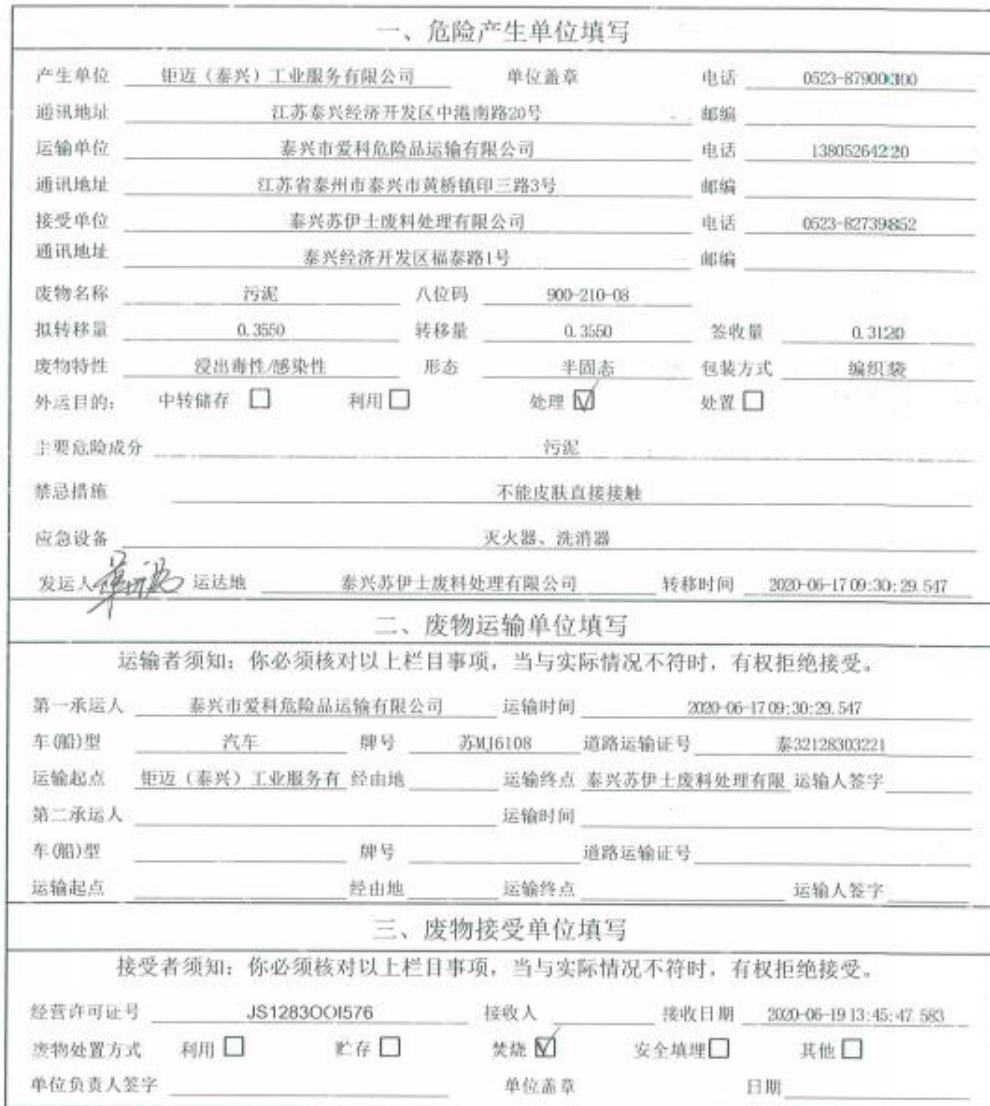 一、危险产生单位填写
产生单位 钜迈（泰兴）工业服务有限公司 单位盖章 电话 0523-87900300
通讯地址 江苏泰兴经济开发区中港南路20号 邮编
运输单位 泰兴市爱科危险品运输有限公司 电话 13805264220
通讯地址 江苏省泰州市泰兴市黄桥镇印三路3号 邮编
接受单位 泰兴苏伊士废料处理有限公司 电话 0523-82739852
通讯地址 泰兴经济开发区福泰路1号 邮编
废物名称 污泥 八位码 900-210-08
拟转移量 0.3550 转移量 0.3550 签收量 0.3120
废物特性 浸出毒性/感染性 形态 半固态 包装方式 编织袋
外运目的： 中转储存 □ 利用 □ 处理 ☑ 处置 □
主要危险成分 污泥
禁忌措施 不能皮肤直接接触
应急设备 灭火器、洗消器
发运人 运达地 泰兴苏伊士废料处理有限公司 转移时间 2020-06-17 09:30:29.547
二、废物运输单位填写
运输者须知：你必须核对以上栏目事项，当与实际情况不符时，有权拒绝接受。
第一承运人 泰兴市爱科危险品运输有限公司 运输时间 2020-06-17 09:30:29.547
车(船)型 汽车 牌号 苏MJ6108 道路运输证号 泰32128303221
运输起点 钜迈（泰兴）工业服务有 经由地 运输终点 泰兴苏伊士废料处理有限 运输人签字
第二承运人 运输时间
车(船)型 牌号 道路运输证号
运输起点 经由地 运输终点 运输人签字
三、废物接受单位填写
接受者须知：你必须核对以上栏目事项，当与实际情况不符时，有权拒绝接受。
经营许可证号 JS1283OOI576 接收人 接收日期 2020-06-19 13:45:47.583
废物处置方式 利用 □ 贮存 □ 焚烧 ☑ 安全填埋 □ 其他 □
单位负责人签字 单位盖章 日期